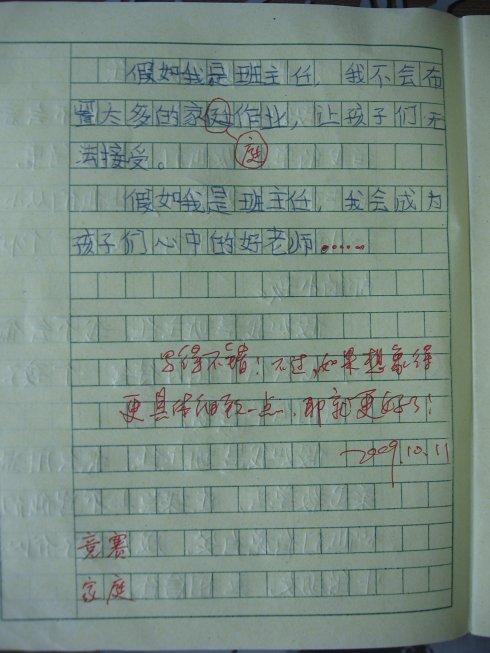 假如我是班主任，我不会布
置太多的家庭作业，让孩子们无
法接受。
庭
假如我是班主任，我会成为
孩子们心中的好老师……
写得不错！不过，如果想象得
更具体细致一点，那就更好了！
2009.10.11
竞赛
家庭